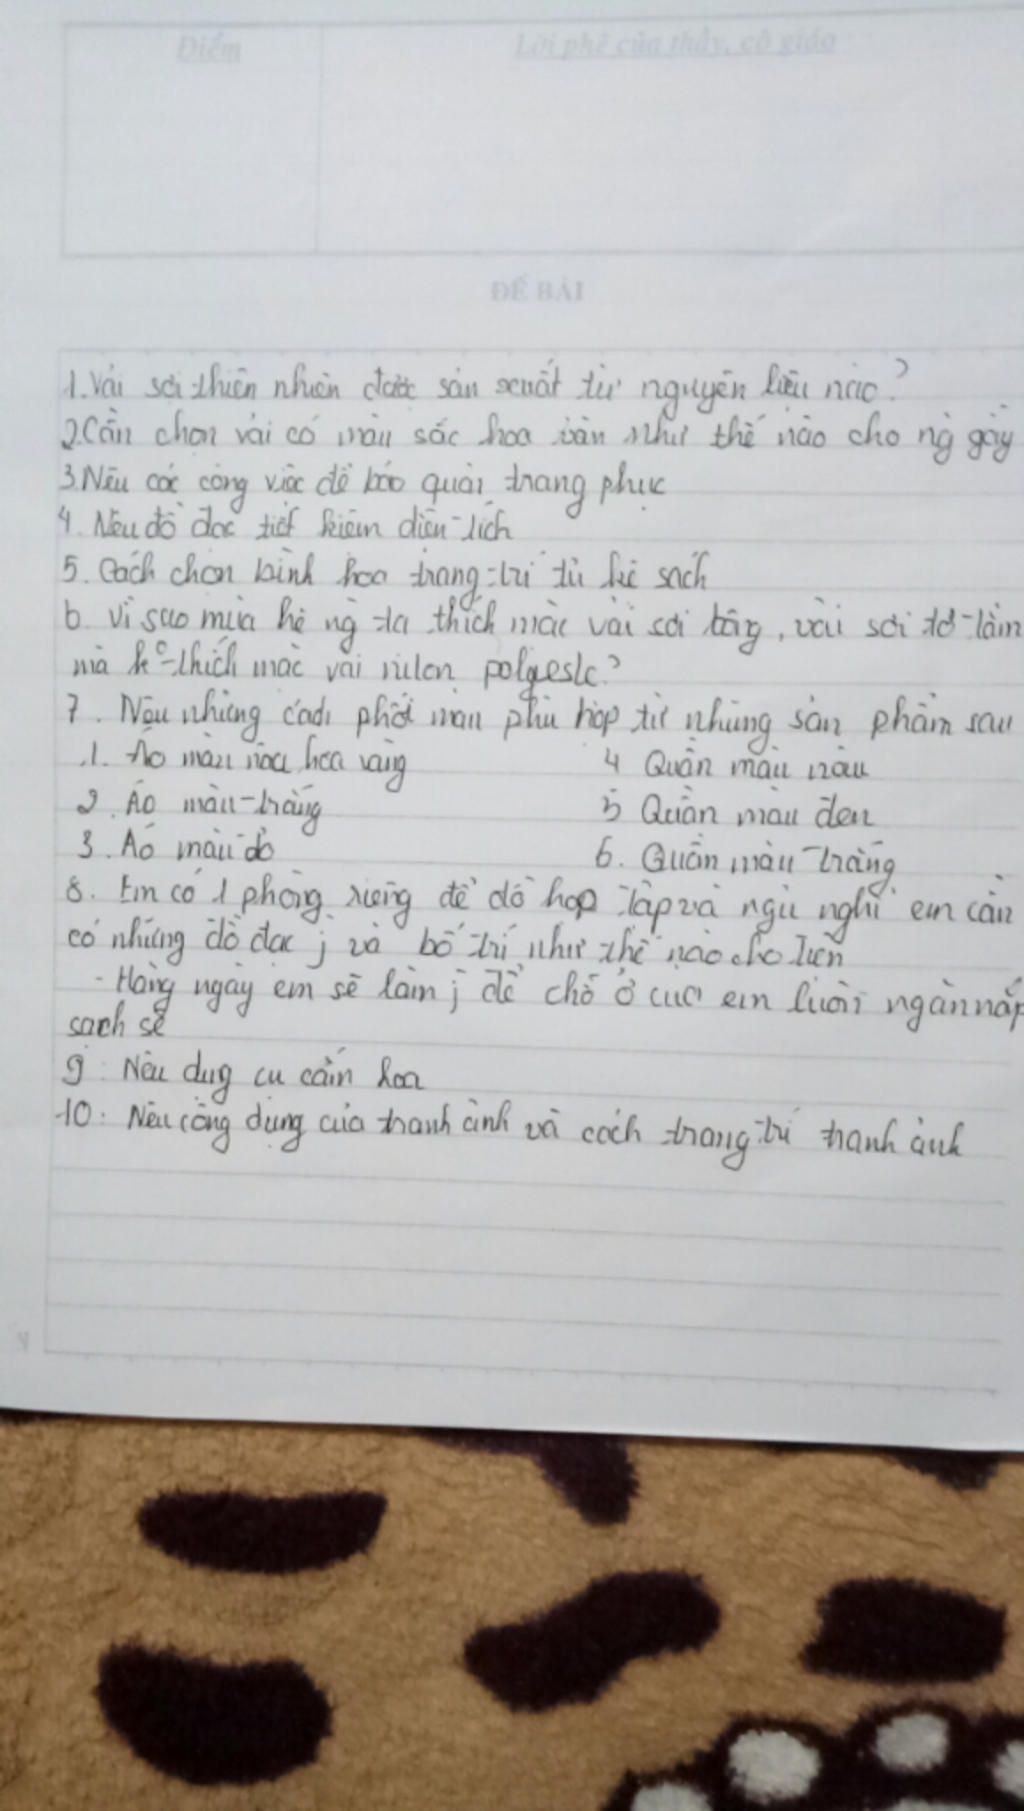 Điểm
Lời phê của thầy, cô giáo
ĐỀ BÀI
1. Vải sợi thiên nhiên được sản xuất từ nguyên liệu nào?
2. Cần chọn vải có màu sắc hoa văn như thế nào cho ng gầy
3. Nêu các công việc để bảo quản trang phục
4. Nêu đồ đạc tiết kiệm diện tích
5. Cách chọn bình hoa trang trí tủ kệ sách
6. Vì sao mùa hè ng ta thích mặc vải sợi bông, vải sợi tơ tằm
mà k° thích mặc vải nilon, polyeste?
7. Nêu những cách phối màu phù hợp từ những sản phẩm sau
1. Áo màu hoa vàng
4 Quần màu nâu
2. Áo màu trắng
5 Quần màu đen
3. Áo màu đỏ
6. Quần màu trắng
8. Em có 1 phòng riêng để đồ học tập và ngủ nghỉ em cần
có những đồ đạc j và bố trí như thế nào cho tiện
- Hàng ngày em sẽ làm j để chỗ ở của em luôn ngăn nắp
sạch sẽ
9. Nêu dụg cụ cắm hoa
10: Nêu công dụng của tranh ảnh và cách trang trí tranh ảnh